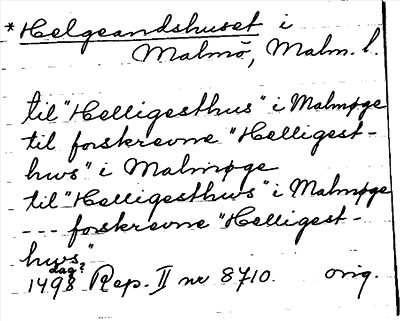 *Helgeandshuset i
Malmö, Malm. l.
til "Helligesthus" i Malmøge
til forskrevne "Helligest-
hws" i Malmøge
til "Helligesthws" i Malmøge
--- forskrevne "Helligest-
hws"
dag?
1498 Rep. II nr 8710. orig.